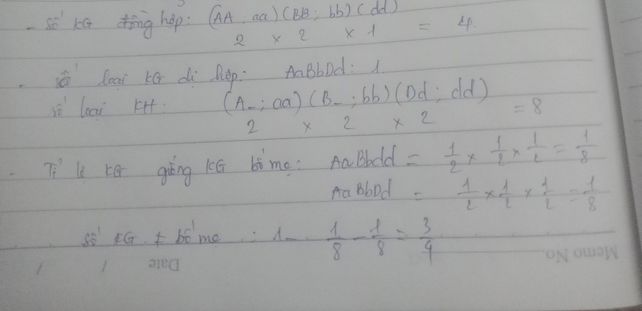 - Số KG đồng hợp: (AA, aa)(BB; bb)(dd)
2 × 2 × 1 = 4.
- Số loại KG dị hợp: AaBbDd: 1
Số loại KH: (A_; aa)(B_; bb)(Dd; dd)
2 × 2 × 2 = 8
- Tỉ lệ KG giống KG bố mẹ: AaBbdd = 1/2 × 1/2 × 1/2 = 1/8
AaBbDd = 1/2 × 1/2 × 1/2 = 1/8
Số KG ≠ bố mẹ : 1 - 1/8 - 1/8 = 3/4
Memo No.
Date / /